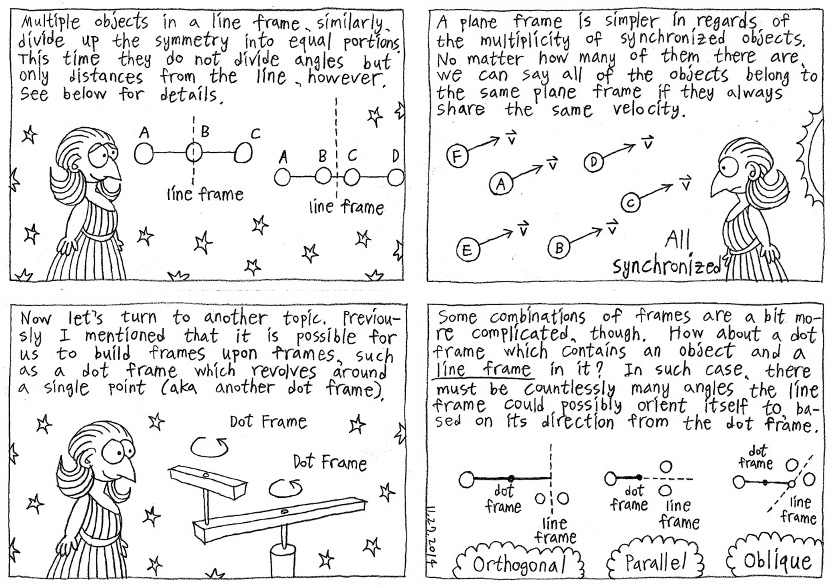 Multiple objects in a line frame, similarly,
divide up the symmetry into equal portions.
This time they do not divide angles but
only distances from the line, however.
See below for details.
A B C
line frame
A B C D
line frame
A plane frame is simpler in regards of
the multiplicity of synchronized objects.
No matter how many of them there are,
we can say all of the objects belong to
the same plane frame if they always
share the same velocity.
F v⃗
A v⃗
D v⃗
C v⃗
E v⃗
B v⃗
All
synchronized
Now let's turn to another topic. Previou-
sly I mentioned that it is possible for
us to build frames upon frames, such
as a dot frame which revolves around
a single point (aka another dot frame).
Dot Frame
Dot Frame
Some combinations of frames are a bit mo-
re complicated, though. How about a dot
frame which contains an object and a
line frame in it? In such case, there
must be countlessly many angles the line
frame could possibly orient itself to, ba-
sed on its direction from the dot frame.
dot
frame
line
frame
Orthogonal
dot
frame
line
frame
Parallel
dot
frame
line
frame
Oblique
11.29.2014